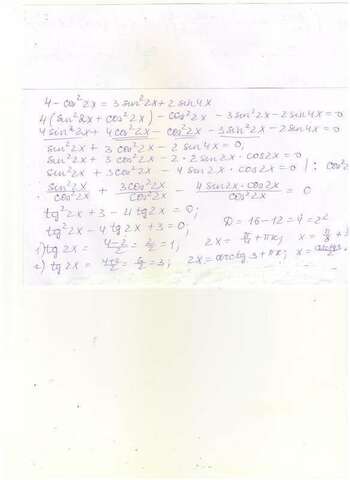 4 - cos²2x = 3 sin²2x + 2 sin4x
4(sin²2x + cos²2x) - cos²2x - 3 sin²2x - 2 sin4x = 0
4 sin²2x + 4 cos²2x - cos²2x - 3 sin²2x - 2 sin4x = 0
sin²2x + 3 cos²2x - 2 sin4x = 0,
sin²2x + 3 cos²2x - 2·2 sin2x·cos2x = 0
sin²2x + 3 cos²2x - 4 sin2x·cos2x = 0 |: cos²
sin²2x/cos²2x + 3cos²2x/cos²2x - 4 sin2x·cos2x/cos²2x = 0
tg²2x + 3 - 4 tg2x = 0;
tg²2x - 4 tg2x + 3 = 0; D = 16 - 12 = 4 = 2²
1) tg2x = 4-2/2 = 2/2 = 1, 2x = π/4 + πk, x = π/8 +
2) tg2x = 4+2/2 = 6/2 = 3; 2x = arctg3 + πk; x =